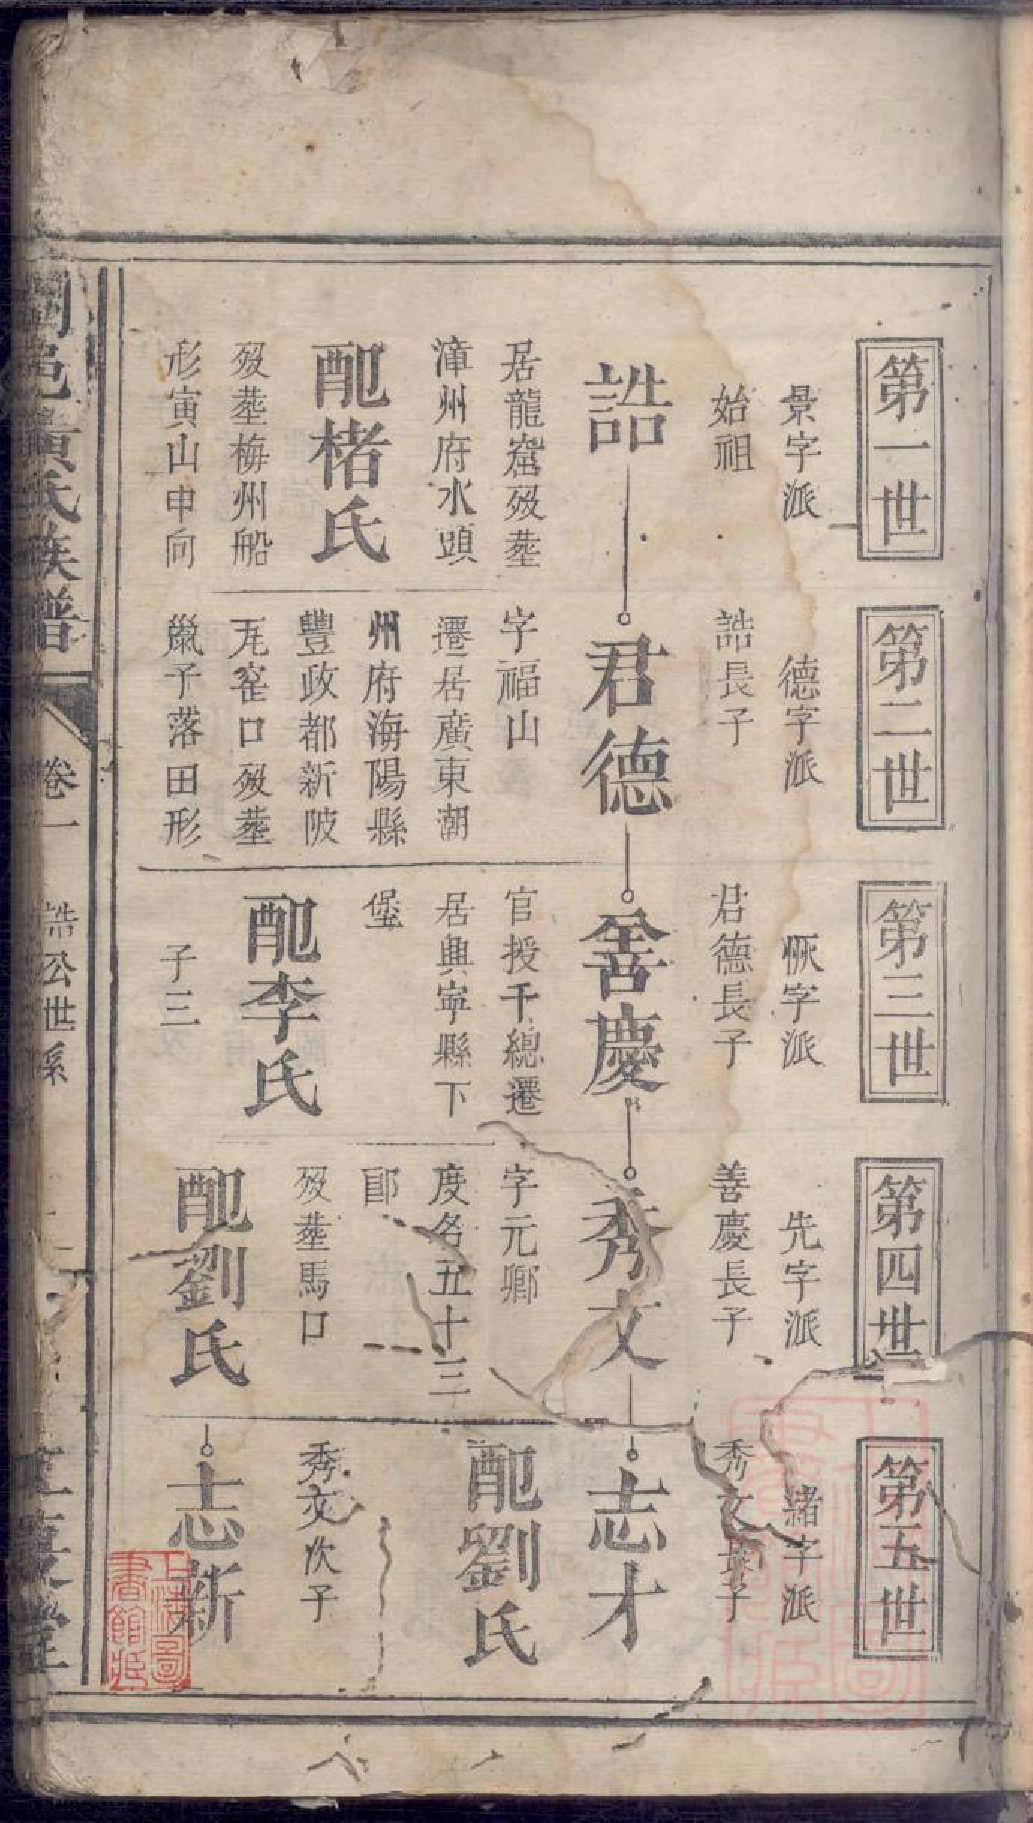 第一世
景字派
始祖
誥
居龍窟歿塟
漳州府水頭
配楮氏
歿塟梅州船
形寅山申向
第二世
德字派
誥長子
君德
字福山
遷居廣東潮
州府海陽縣
豐政都新陂
瓦窑口歿塟
巤子落田形
第三世
恢字派
君德長子
善慶
官授千總遷
居興寧縣下
堡
配李氏
子三
第四世
先字派
善慶長子
秀文
字元卿
度名五十三
郎
歿塟馬口
配劉氏
第五世
緒字派
秀文長子
志才
配劉氏
秀文次子
志新
黃氏族譜
卷一
誥公世系
上海圖書館藏